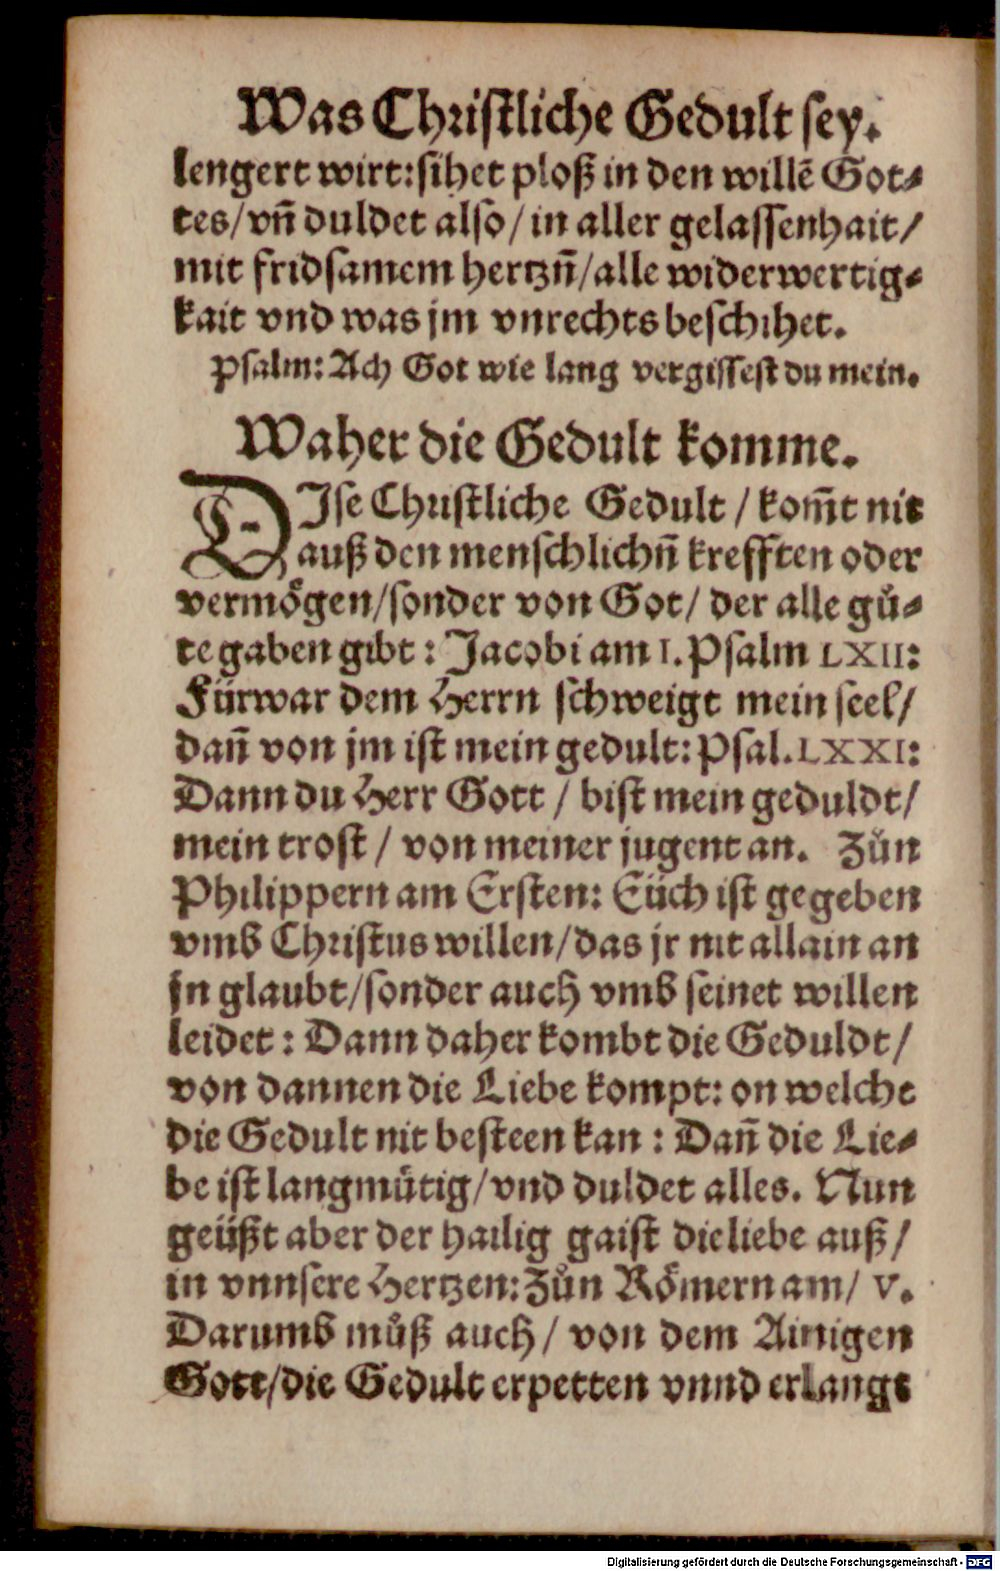 Was Christliche Gedult sey.
lengert wirt: sihet ploß in den willē Got⸗
tes / vñ duldet also / in aller gelassenhait /
mit fridsamem hertzñ / alle widerwertig⸗
kait vnd was jm vnrechts beschihet.
Psalm: Ach Got wie lang vergissest du mein.
Waher die Gedult komme.
DIse Christliche Gedult / kom̄t nit
auß den menschlichñ krefften oder
vermögen / sonder von Got / der alle gů⸗
te gaben gibt: Jacobi am I. Psalm LXII:
Fürwar dem Herrn schweigt mein seel /
dañ von jm ist mein gedult: Psal. LXXI:
Dann du Herr Gott / bist mein geduldt /
mein trost / von meiner jugent an. Zůn
Philippern am Ersten: Eüch ist gegeben
vmb Christus willen / das jr nit allain an
jn glaubt / sonder auch vmb seinet willen
leidet: Dann daher kombt die Geduldt /
von dannen die Liebe kompt: on welche
die Gedult nit besteen kan: Dañ die Lie⸗
be ist langmütig / vnd duldet alles. Nun
geüßt aber der hailig gaist die liebe auß /
in vnnsere Hertzen: Zůn Römern am / V.
Darumb můß auch / von dem Ainigen
Gott / die Gedult erpetten vnnd erlangt
Digitalisierung gefördert durch die Deutsche Forschungsgemeinschaft - DFG